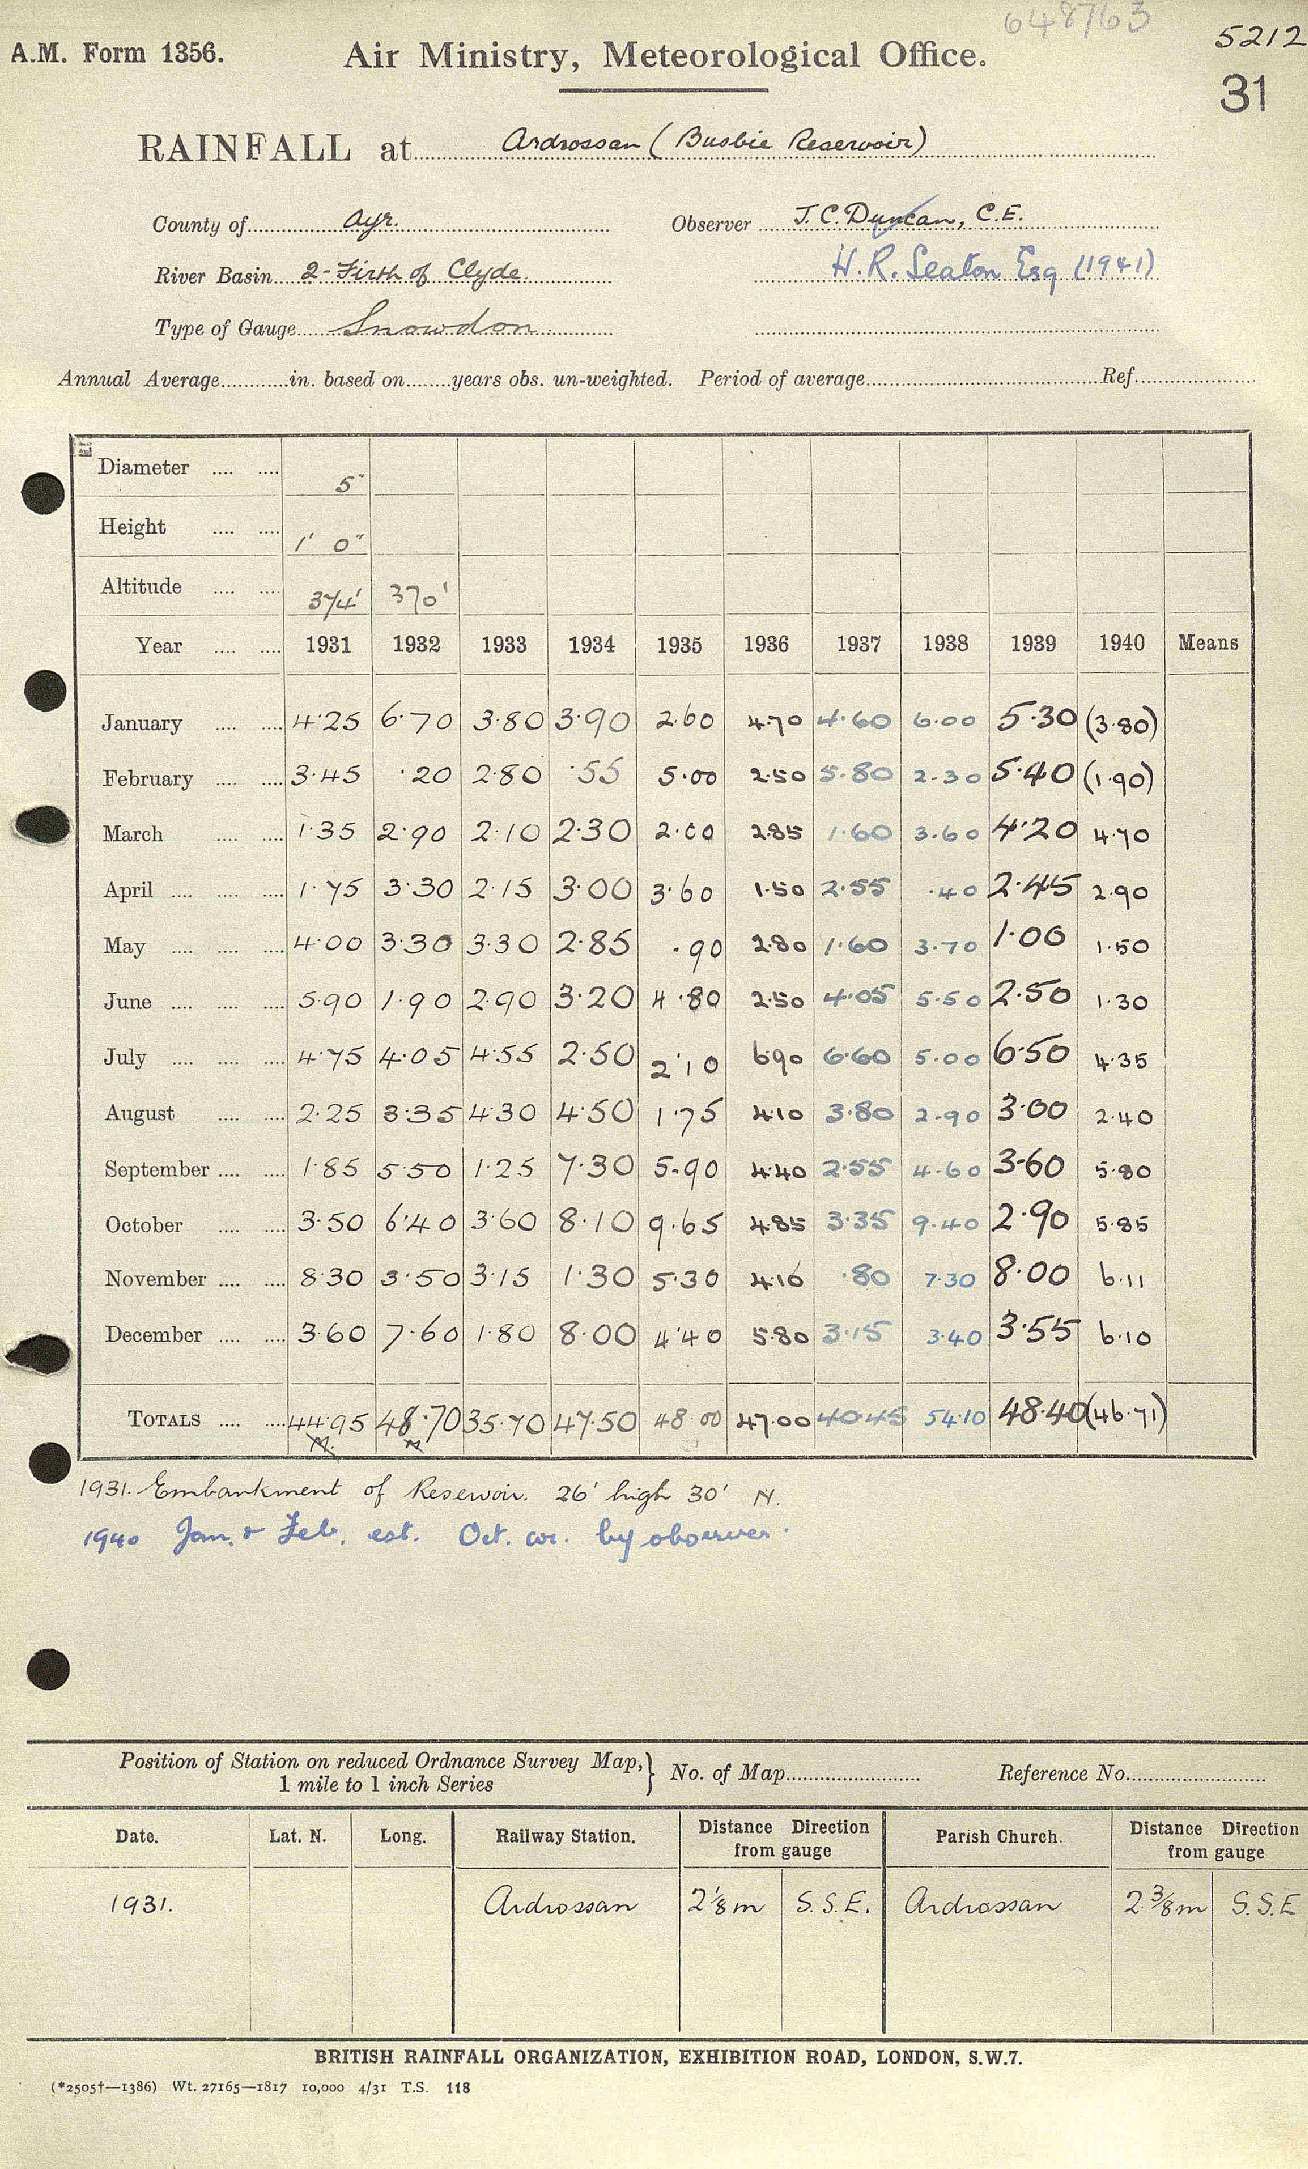 648763
5212
A.M. Form 1356. Air Ministry, Meteorological Office.
31
RAINFALL at Ardrossan (Busbie Reservoir)
County of Ayr. Observer J. C. Duncan, C.E.
River Basin 2-Firth of Clyde. H. R. Seaton Esq (1941)
Type of Gauge Snowdon
Annual Average in. based on years obs. un-weighted. Period of average Ref.
Diameter 5"
Height 1' 0"
Altitude 374' 370'
Year 1931 1932 1933 1934 1935 1936 1937 1938 1939 1940 Means
January 4.25 6.70 3.80 3.90 2.60 4.70 4.60 6.00 5.30 (3.80)
February 3.45 .20 2.80 .55 5.00 2.50 5.80 2.30 5.40 (1.90)
March 1.35 2.90 2.10 2.30 2.00 2.85 1.60 3.60 4.20 4.70
April 1.75 3.30 2.15 3.00 3.60 1.50 2.55 .40 2.45 2.90
May 4.00 3.30 3.30 2.85 .90 2.80 1.60 3.70 1.00 1.50
June 5.90 1.90 2.90 3.20 4.80 2.50 4.05 5.50 2.50 1.30
July 4.75 4.05 4.55 2.50 2.10 6.90 6.60 5.00 6.50 4.35
August 2.25 3.35 4.30 4.50 1.75 4.10 3.80 2.90 3.00 2.40
September 1.85 5.50 1.25 7.30 5.90 4.40 2.55 4.60 3.60 5.80
October 3.50 6.40 3.60 8.10 9.65 4.85 3.35 9.40 2.90 5.85
November 8.30 3.50 3.15 1.30 5.30 4.10 .80 7.30 8.00 6.11
December 3.60 7.60 1.80 8.00 4.40 5.80 3.15 3.40 3.55 6.10
TOTALS 44.95 48.70 35.70 47.50 48.00 47.00 40.45 54.10 48.40 (46.71)
1931. Embankment of Reservoir. 26' high 30' N.
1940 Jan. & Feb. est. Oct. cor. by observer.
Position of Station on reduced Ordnance Survey Map, 1 mile to 1 inch Series } No. of Map Reference No.
Date. Lat. N. Long. Railway Station. Distance Direction from gauge Parish Church. Distance Direction from gauge
1931. Ardrossan 2 1/8 m S.S.E. Ardrossan 2 3/8 m S.S.E
BRITISH RAINFALL ORGANIZATION, EXHIBITION ROAD, LONDON, S.W.7.
(*2505†—1386) Wt. 27165—1817 10,000 4/31 T.S. 118